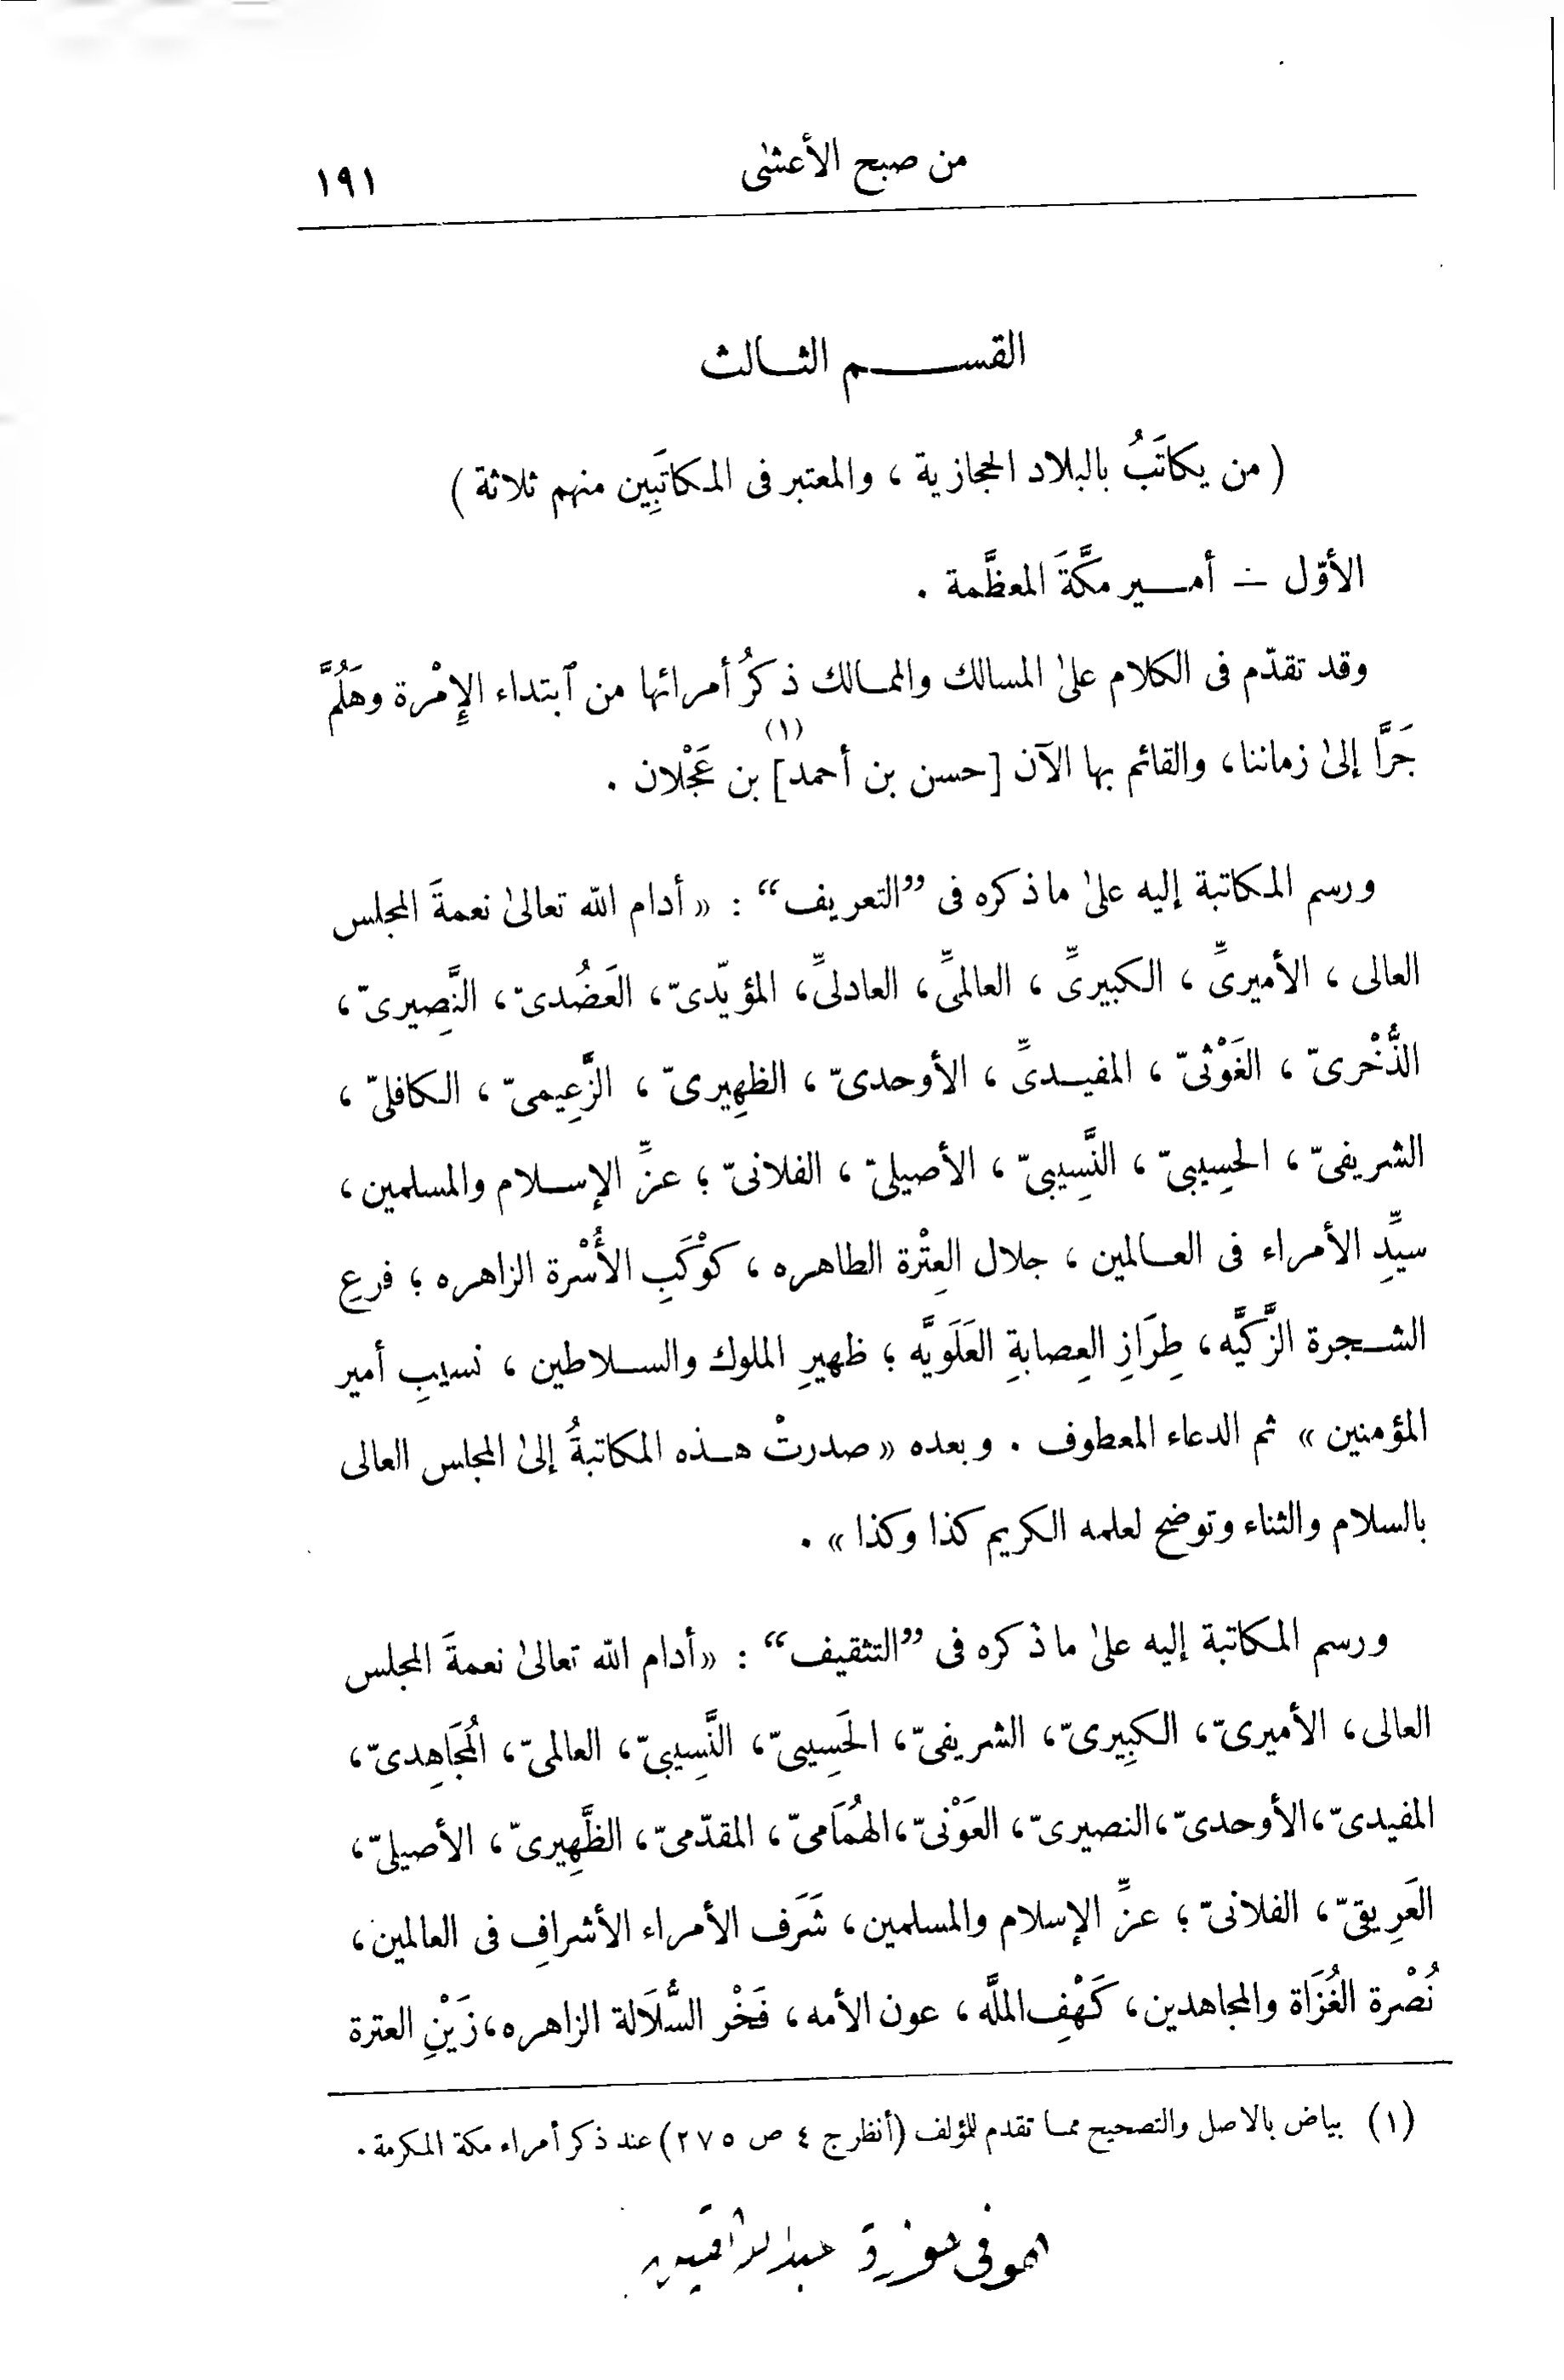 من صبح الأعشى
١٩١
القسم الثالث
( من يكاتَبُ بالبلاد الحجازية ، والمعتبر فى المكاتَبِين منهم ثلاثة )
الأوّل – أمير مكَّةَ المعظَّمة .
وقد تقدّم فى الكلام علىٰ المسالك والممالك ذكرُ أمرائها من ٱبتداء الإِمْرة وهَلُمَّ
جَرًّا إلىٰ زماننا، والقائم بها الآن [حسن بن أحمد](١) بن عَجْلان .
ورسم المكاتبة إليه علىٰ ما ذكره فى ”التعريف“ : « أدام الله تعالىٰ نعمةَ المجلس
العالى ، الأميرىِّ ، الكبيرىِّ ، العالمىِّ ، العادلىِّ، المؤيّدىّ، العَضُدىّ، النَّصِيرىّ،
الذُّخْرىّ ، الغَوْثىّ ، المفيدىِّ ، الأوحدىّ ، الظهِيرىّ ، الزَّعِيمىّ ، الكافلىّ ،
الشريفىّ ، الحسِيبىّ ، النَّسِيبىّ ، الأصيلىّ ، الفلانىّ ؛ عزِّ الإسلام والمسلمين ،
سيِّدِ الأمراء فى العالمين ، جلال العِتْرة الطاهره ، كوْكَبِ الأُسْرة الزاهره ؛ فرعِ
الشجرة الزَّكيَّه ، طِرَازِ العِصابةِ العَلَويَّه ؛ ظهيرِ الملوك والسلاطين ، نسيبِ أمير
المؤمنين » ثم الدعاء المعطوف . وبعده « صدرتْ هذه المكاتبةُ إلىٰ المجلس العالى
بالسلام والثناء وتوضح لعلمه الكريم كذا وكذا » .
ورسم المكاتبة إليه علىٰ ما ذكره فى ”التثقيف“ : «أدام الله تعالىٰ نعمةَ المجلس
العالى، الأميرىّ، الكبِيرىّ، الشريفىّ، الحَسِيبىّ، النَّسِيبىّ، العالمىّ، المُجَاهِدىّ،
المفيدىّ،الأوحدىّ،النصيرىّ، العَوْنىّ،الهُمَامىّ، المقدّمىّ، الظَّهِيرىّ، الأصيلىّ،
العَرِيقىّ، الفلانىّ ؛ عزِّ الإسلام والمسلمين، شَرَف الأمراء الأشرافِ فى العالمين،
نُصْرة الغُزَاة والمجاهدين، كَهْفِ الملَّه ، عون الأمه، فَخْر السُّلَالة الزاهره، زَيْنِ العترة
(١) بياض بالاصل والتصحيح مما تقدم للمؤلف (أنظر ج ٤ ص ٢٧٥) عند ذكر أمراء مكة المكرمة .